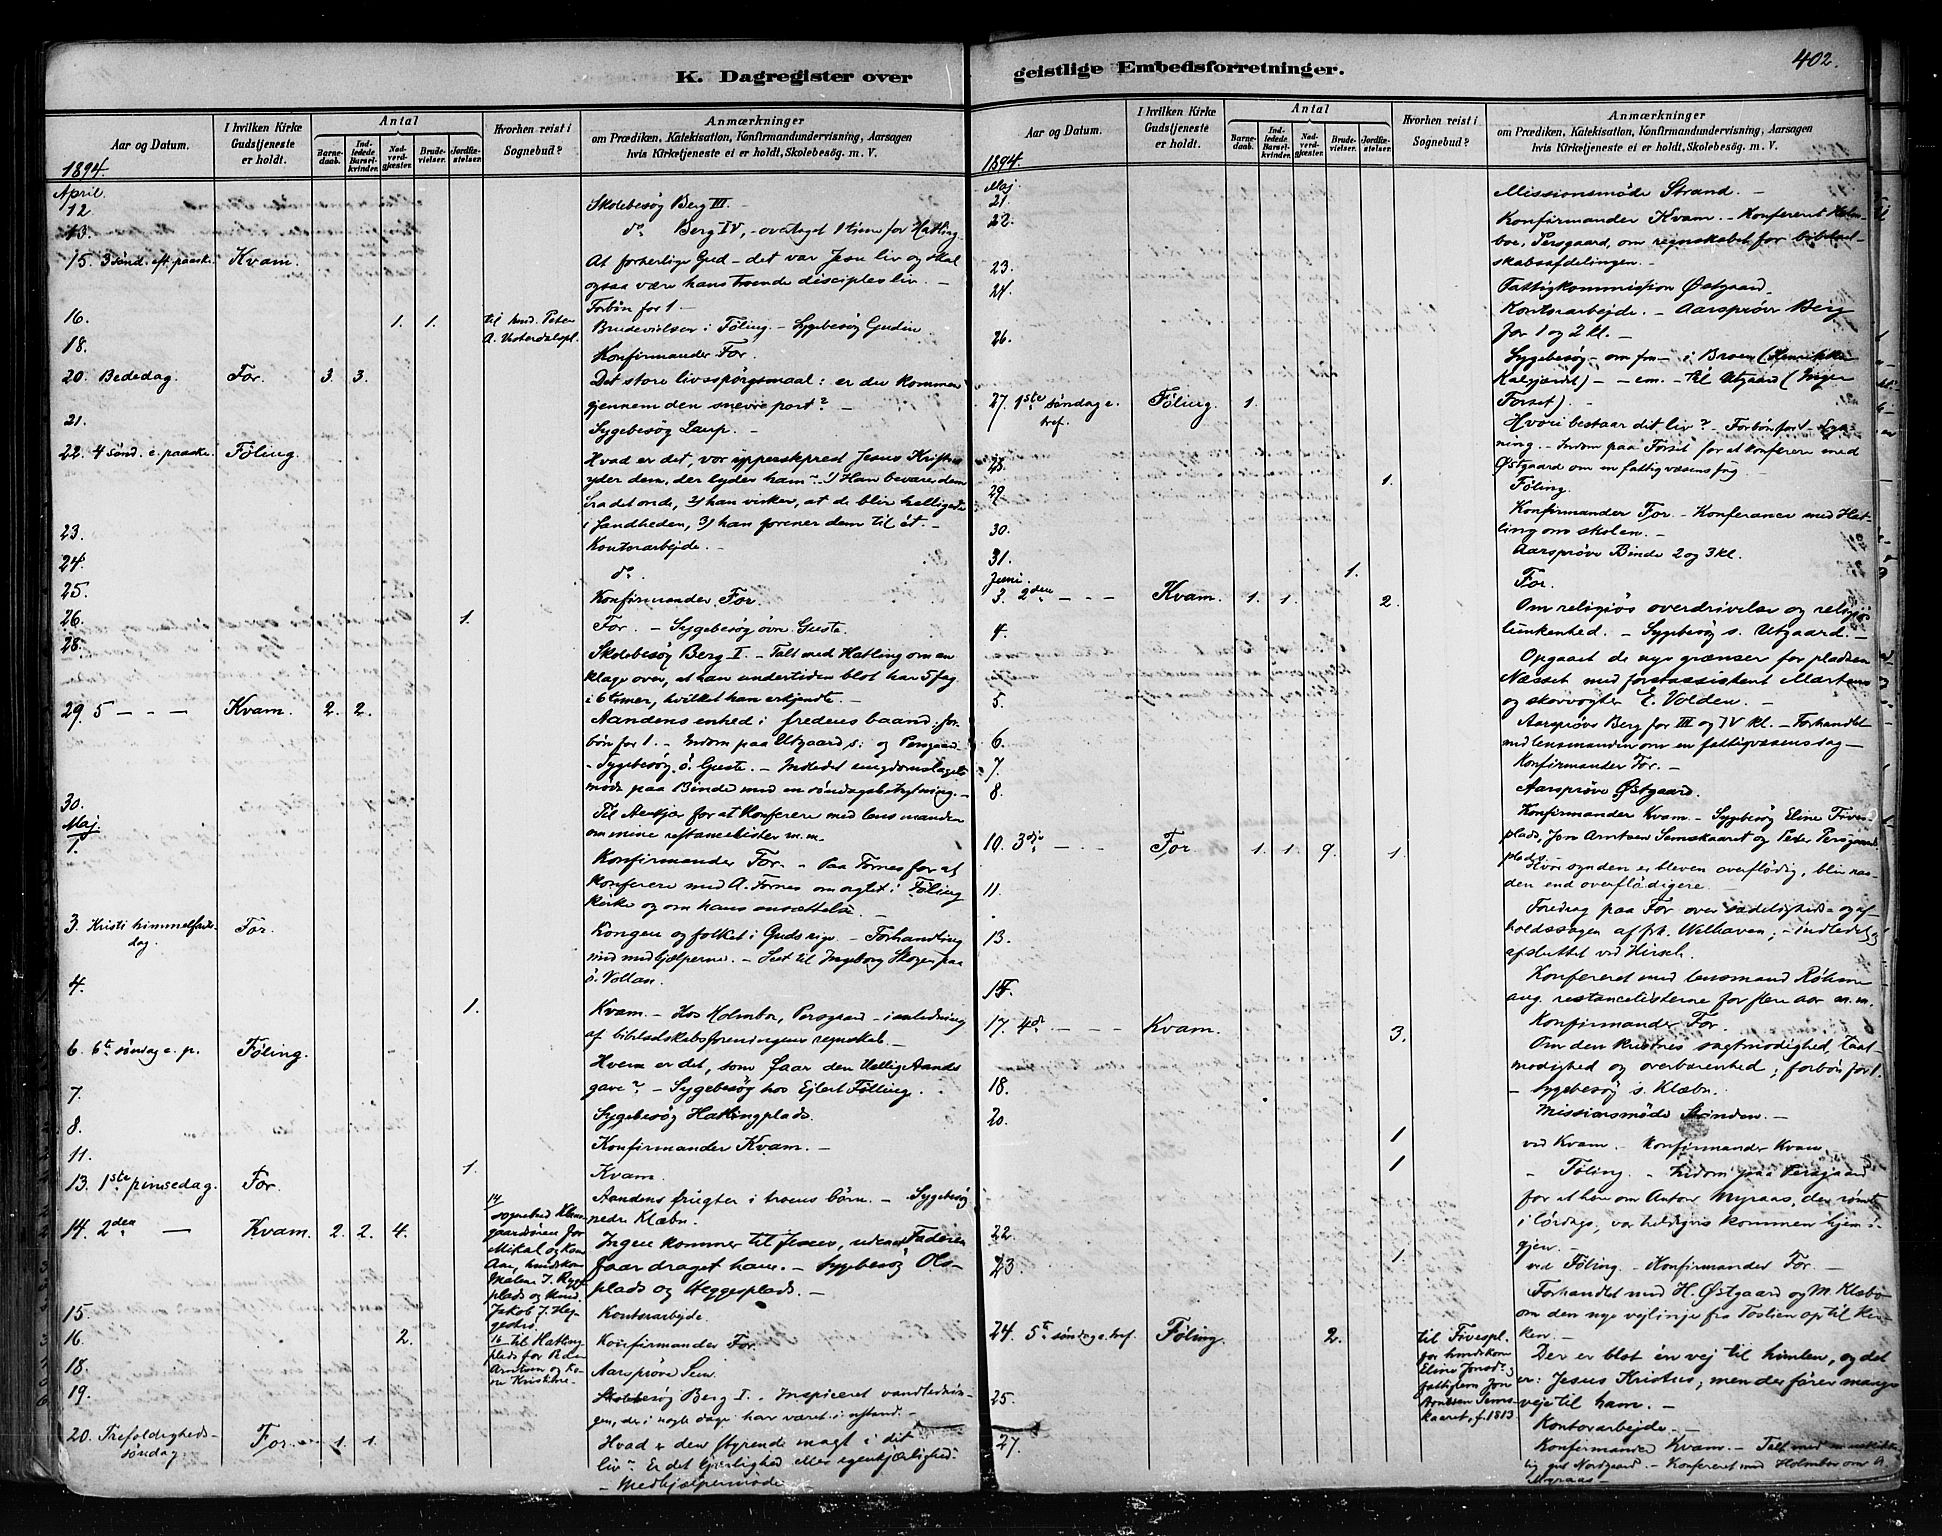 K. Dagregister over
Aar og Datum.
I hvilken Kirke Gudstjeneste er holdt.
Antal
Barnedaab.
Indledede Barselkvinder.
Nadverdgjester.
Brudevielser.
Jordfæstelser.
Hvorhen reist i Sognebud?
Anmærkninger
om Prædiken, Katekisation, Konfirmandundervisning, Aarsagen
hvis Kirketjeneste ei er holdt, Skolebesög. m. V.
1894.
April.
12 Skolebesög Berg III. –
13. do Berg IV, – overtaget 1 time for Hatling.
15. 3 sönd. eft. paaske. Kvam. At forherlige Gud – det var Jesu liv og skal
ogsaa være hans troende disciples liv. –
Forbön for 1 –
16. 1. 1. til hmd. Peter Brudevielser i Föling. – Sygebesög
18. Konfirmander For.
20. Bededag. For. 3. 3. Det store livsspörgsmaal: er du kommen
gjennem den snevre port? –
21. Sygebesög –
22. 4 sönd. e. paaske. Föling. Hvad er det, vor ypperstepræst Jesus Kristus
yder dem, der lyder ham? 1) Han bevarer dem
fra det onde, 2) han virker, at de blir helligede
i Sandheden, 3) han forener dem til ét –
23. Kontorarbejde. –
24. do.
25. Konfirmander For.
26. 1. For. – Sygebesög övre Guste.
28. Skolebesög Berg I. – Talt med Hatling om en
klage over, at han undertiden blot har 5 fag
i 6 timer, hvilket han erkjendte. –
29. 5 – – – Kvam. 2. 2. Aandens enhed i fredens baand; for-
bön for 1. – Indom paa Utgaard s: og Persgaard
– Sygebesög ö. Guste. – Indledet ungdomslagets
möde paa Binde med en söndagsbetragtning. –
30. Til for at konferere med lensmanden
om mine restancelister m. m.
Maj
1. Konfirmander For. – Paa Fornes for at
konferere med A. Fornes om orglet i Föling
kirke og om hans ansættelse. –
3. Kristi himmelfarts-
dag. For. Kongen og folket i Guds rige. – Forhandling
med medhjælperne. – Seet til Ingeborg paa
ö. Vollan.
4. 1. Kvam. – Hos Holmboe, Persgaard – i anledning
af bibelselskabsforeningens regnskab. –
6. 6te söndag e. p. Föling. Hvem er det, som faar den Hellig Aands
gave? – Sygebesög hos Ejlert Følling.
7. Sygebesög Hatlingplads.
8. Konfirmander Kvam. –
11. 1. Kvam.
13. 1ste pinsedag. For. Aandens frugter i troens börn. – Sygebesög
nedre Klæbu.
14. 2den – Kvam. 2. 2. 4. Ingen kommer til Jesus, uden Faderen
faar draget ham. – Sygebesög Ols-
plads og Heggesplads. –
15. Kontorarbejde.
16. 2. 16 til Hatling- Konfirmander For.
plads for
18. Aarspröve Sem.
19. Skolebesög Berg I. Inspiceret vandlednin-
gen, der i nogle dage har været i ustand. –
20. Trefoldigheds-
söndag. For. 1. 1. Hvad er den styrende magt i dit
liv? Er det kjærlighed eller egenkjærlighed?
– Medhjælpermöde
geistlige Embedsforretninger.
402.
Aar og Datum.
I hvilken Kirke Gudstjeneste er holdt.
Antal
Barnedaab.
Indledede Barselkvinder.
Nadverdgjester.
Brudevielser.
Jordfæstelser.
Hvorhen reist i Sognebud?
Anmærkninger
om Prædiken, Katekisation, Konfirmandundervisning, Aarsagen
hvis Kirketjeneste ei er holdt, Skolebesög. m. V.
1894.
Maj.
21. Missionsmöde Strand. –
22. Konfirmander Kvam. – Konfereret Holm-
boe, Persgaard, om regnskabet for bibelsel-
skabsafdelingen. –
23. Fattigkommission Østgaard.
24. Kontorarbejde. – Aarspröve Berg
for 1 og 2 kl. –
26. Sygebesög – om fm – i Broen
– – em. – til Utgaard (Inger
Forset). –
27. 1ste söndag e.
tref. Föling. 1. Hvori bestaar dit liv? – Forbön for 1 –
– Indom paa Forset for at konferere med
Østgaard om en fattigvæsens sag
28. 1. Föling.
29. Konfirmander For. – Konference med Hat-
ling om skolen. –
30. Aarspröve Binde 2 og 3 kl.
31. 1. For.
Juni.
3. 2den – – – Kvam. 1. 1. 2. Om religiös overdrivelse og religiös
lunkenhed. – Sygebesög s. Utgaard. –
4. Opgaaet de nye grænser for pladsen
Næsset med forstassistent
og skovvogter E. Volden. –
5. Aarspröve Berg for III og IV kl. – Forhandlet
med lensmanden om en fattigvæsenssag –
6. Konfirmander For. –
7. Aarspröve Østgaard.
8. Konfirmander Kvam. – Sygebesög Eline Fives-
plads, Jon Arntsen Semskaaret og Peder Persgaards-
plads. –
10. 3dje – – – For. 1. 1. 9. 1. Hvor synden er bleven overflödig, blir naa-
den end overflödigere.
11. Foredrag paa For over sædeligheds- og af-
holdssagen af frk. Welhaven; – indledet og
afsluttet ved Hirsch.
13. Konfereret med lensmand
ang. restancelisterne for flere aar m. m.
15. Konfirmander For.
17. 4de – – – Kvam. 3. Om den kristnes sagtmodighed, taal-
modighed og overbærenhed; forbön for 1.
– Sygebesög s. Klæbu.
18. Missionsmöde –
20. 1 ved Kvam. – Konfirmander Kvam.
1 – Föling. – Indom paa Persgaard
for at höre om Anton Myraas, der römte
i lördags, var heldigvis kommen hjem i-
gjen. –
22. 1. ved Föling. – Konfirmander For. –
23. Forhandlet med H. Østgaard og M. Klæbu
om den nye vejlinje fra op til kir-
ken. –
24. 5te söndag e. tref. Föling. 2. til Fivespl. Der er blot én vej til himlen, og det
for huuskone er: Jesus Kristus; men der förer mange
Eline Jonsdr. veje til ham. –
fattiglem Jon
Arntsen Sems-
kaaret, f. 1813
25. Kontorarbejde. –
27. Konfirmander Kvam. – Talt med
gut Nordgaard. – Konfereret med Holmboe om A.
Myraas –